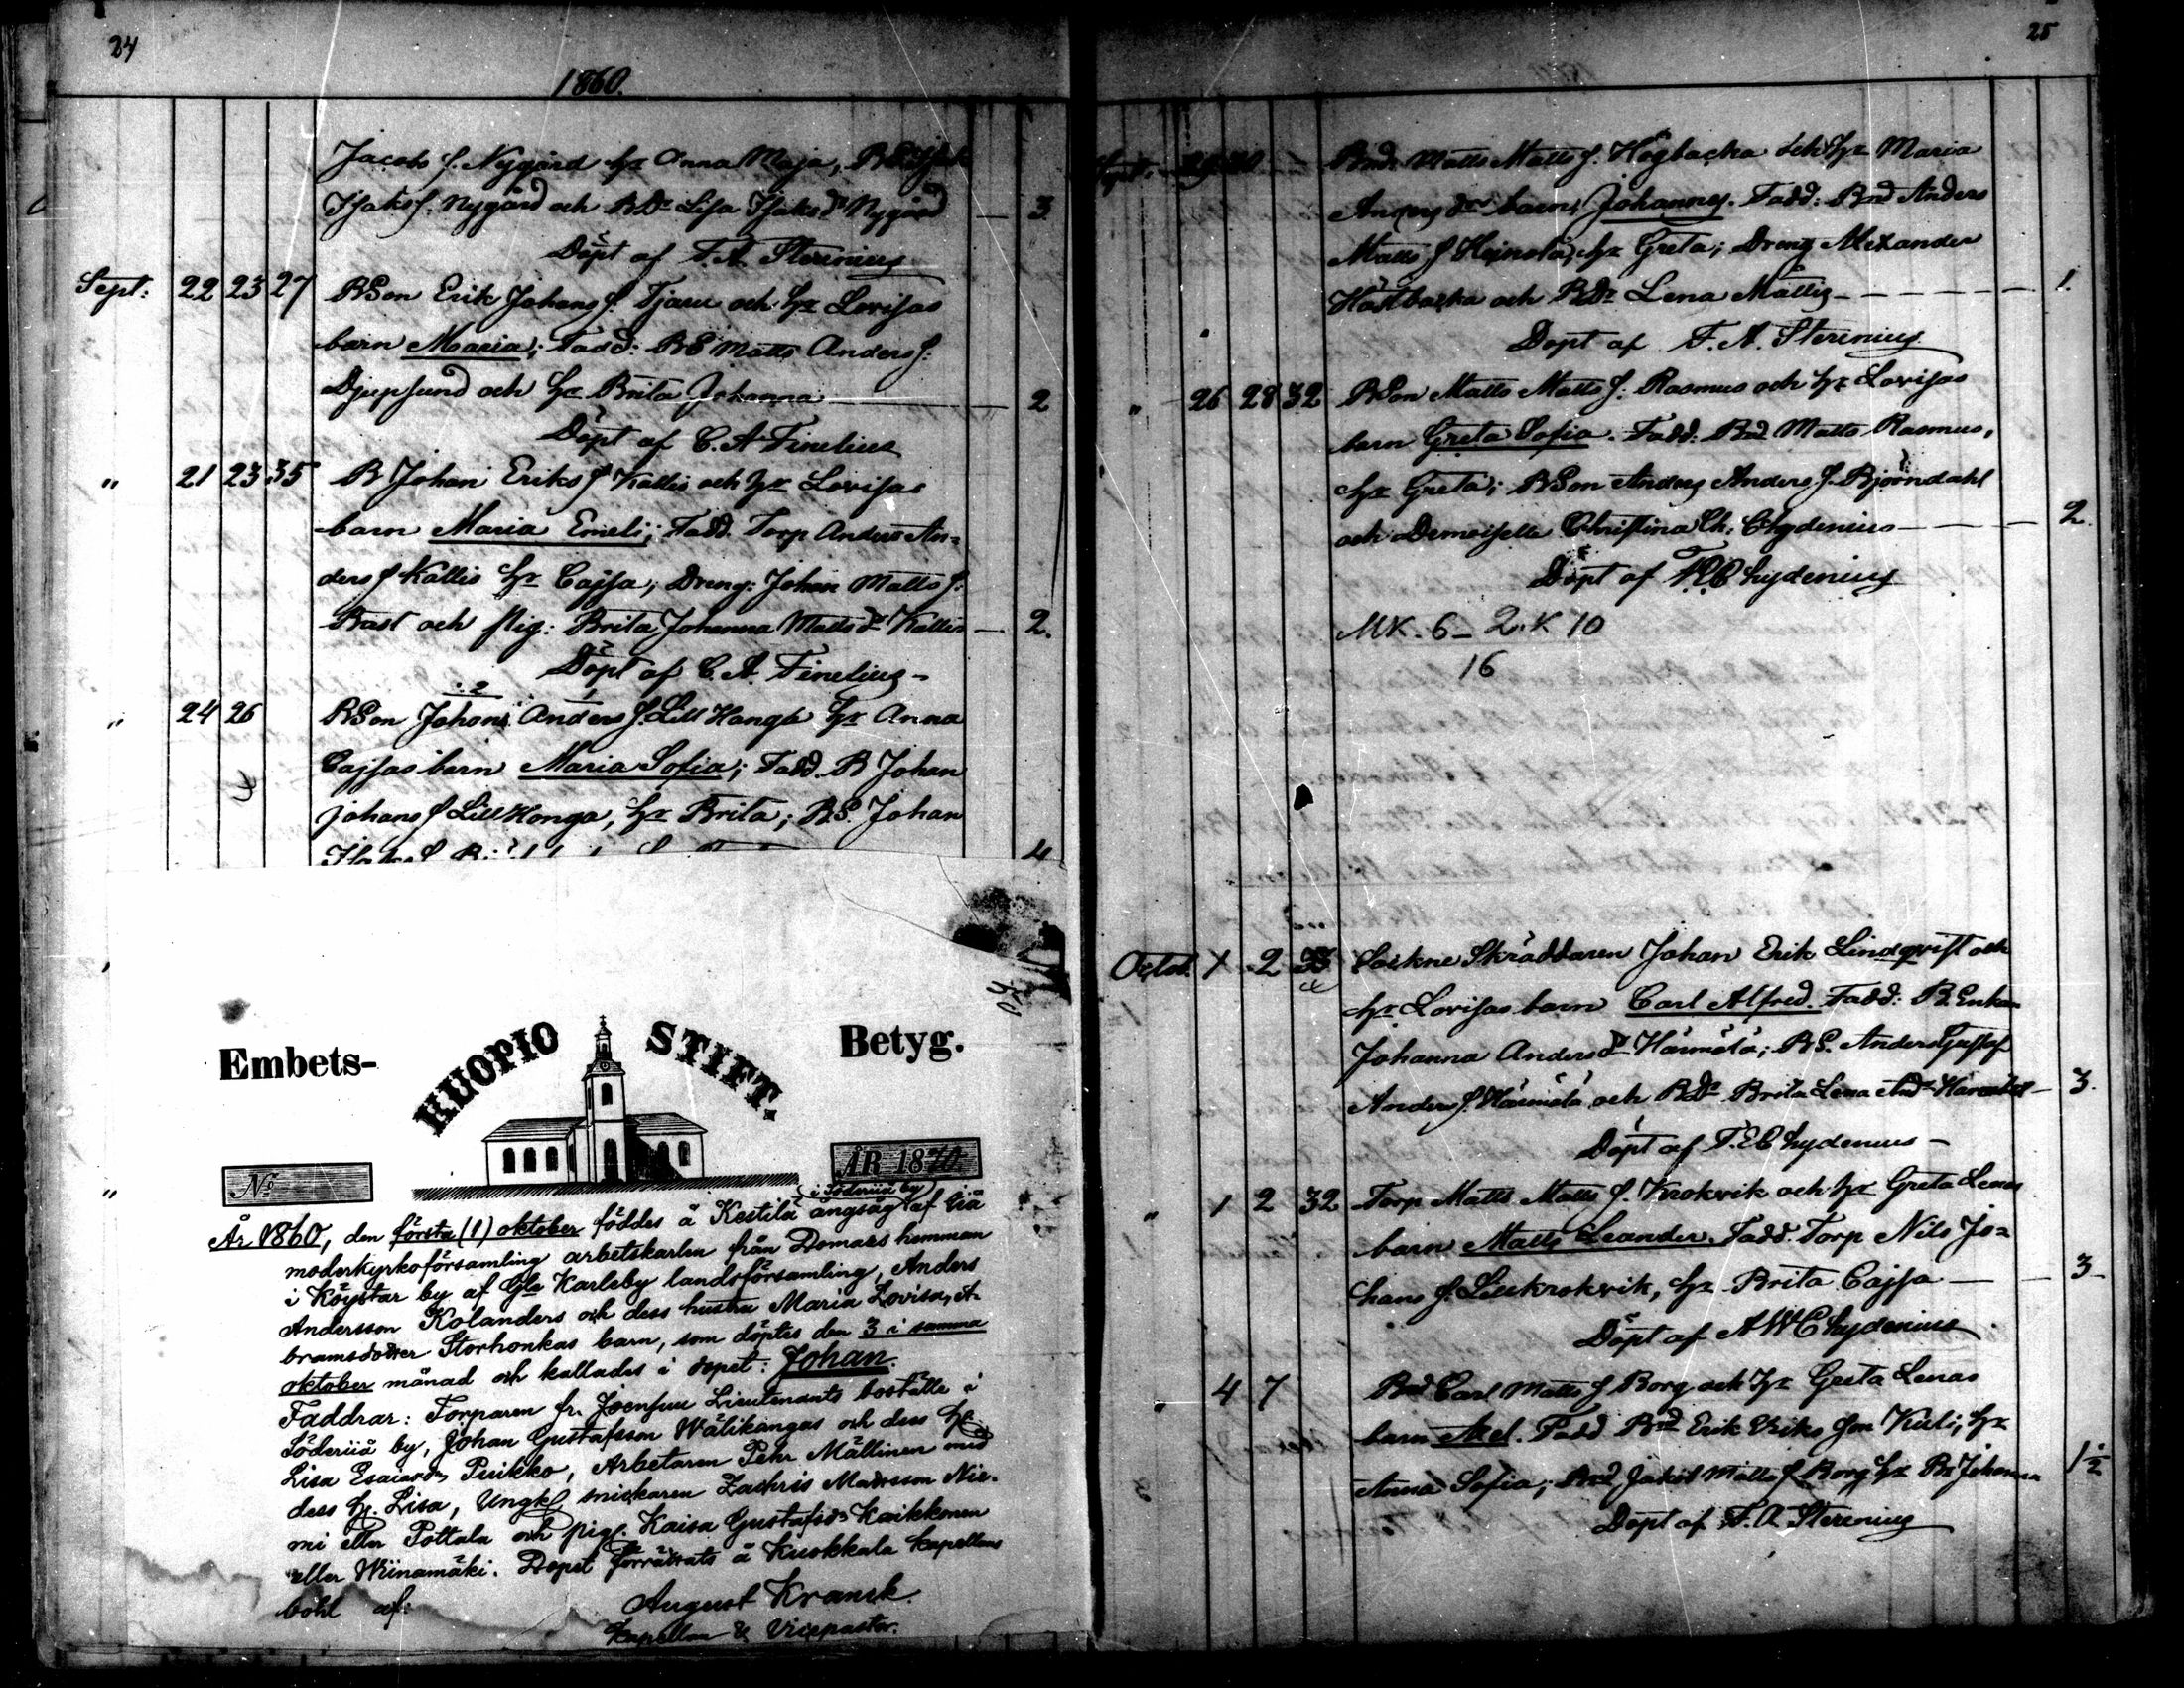 24
1860.
Jacobs f. Nygård hr Anna Maja,
Isaks f. Nygård och BDr Lisa Isaks dr Nygård — 3
Döpt af F. A. Sterenius
Sept: 22 23 27 BSon Erik Johans f. Tjaru och hr Lovisas
barn Maria; Fadd: BS Matts Anders f:
Djupsund och hr Brita Johanna — 2
Döpt af C. A. Finelius
" 21 23 35 B Johan Eriks f Kallis och hr Lovisas
barn Maria Emeli; Fadd. Torp Anders An=
ders f Kallis hr Cajsa; Dreng: Johan Matts f:
Bast och Pig: Brita Johanna Matts dr Kallis — 2.
Döpt af C. A. Finelius –
" 24 26 BSon Johans Anders f. Lill Honga hr Anna
Cajsas barn Maria Sofia; Fadd. B Johan
Johans f Lill Honga, hr Brita; BS. Johan
4
Embets- KUOPIO STIFT. Betyg.
No ÅR 1870.
i Söderiiå by
År 1860, den första (1) oktober föddes å Kestilä ångsåg af Iiå
moderkyrkoförsamling arbetskarlen från Domars hemman
i Köystar by af Gla Karleby landsförsamling, Anders
Andersson Kolanders och dess hustru Maria Lovisa, A-
bramsdotter Storhonkas barn, som döptes den 3 i samma
oktober månad och kallades i dopet: Johan.
Faddrar: Torparen fr. Joensuu Lieutenants boställe i
Söderiiå by, Johan Gustafsson Wälikangas och dess h.
Lisa Esaiasdr Puikko, Arbetaren Pehr Mällinen med
dess h. Lisa, Ungk. snickaren Zachris Madsson Nie-
mi eller Pottala och pig. Kaisa Gustafsdr Kaikkonen
eller Wiinamäki. Dopet förrättats å Kuokkala kapellans
bohl af:
August Kranck.
Kapellan & Vicepastor.
25
Sept. Bnd. Matts Matts f. Högbacka och hr Maria
Anders drs barn, Johannes. Fadd: Bnd Anders
Matts f Hejnola, hr Greta; Dreng Alexander
Hästbacka och BDr Lena Mattis — 1.
Döpt af F. A. Sterenius
" 26 28 32 BSon Matts Matts f. Rasmus och hr Lovisas
barn Greta Sofia. Fadd: Bnd Matts Rasmus,
hr Greta; BSon Anders Anders f. Björndahl
och Demoiselle Christina Ch: Chydenius — 2.
Döpt af Chydenius
MK. 6 – 2. K 10
16
Octob. 1 2 33 Sockne Skräddaren Johan Erik Lindqvist och
hr Lovisas barn Carl Alfred. Fadd: B. Enkan
Johanna Anders dr Hannola; BS. Anders Gustaf
Anders f. Hannola och BDr Brita Lena — 3.
Döpt af F. E Chydenius –
" 1 2 32 Torp Matts Matts f. Krokvik och hr Greta Lenas
barn Matts Leander. Fadd. Torp Nils Jo=
hans f. Lillkrokvik, hr Brita Cajsa — 3
Döpt af A W Chydenius
4 7 Bnd Carl Matts f Borg och hr Greta Lenas
barn Axel. Fadd Bnd Erik Eriks son Kieli, hr
Anna Sofia; Bnd Jakob Matts f Borg hr Br Johanna 1½
Döpt af F. A. Sterenius